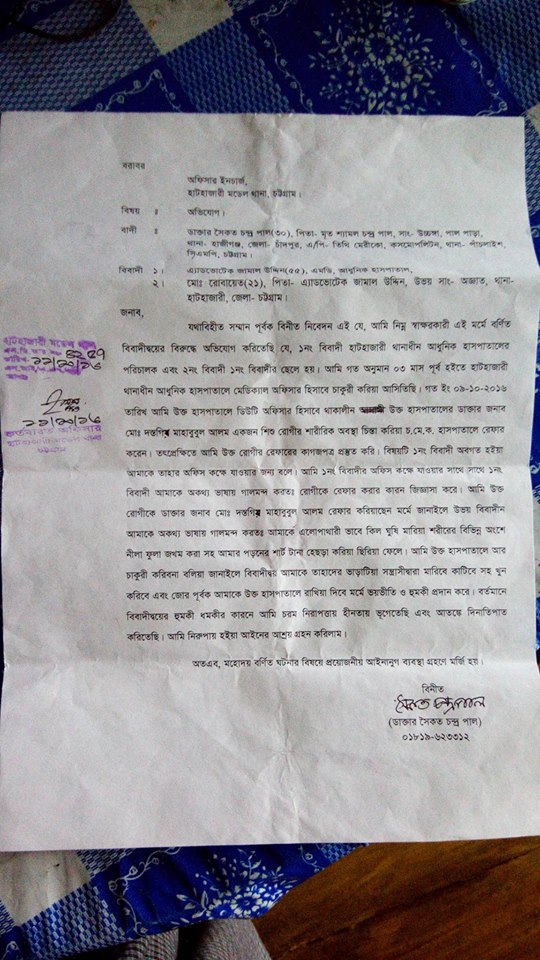 বরাবর
অফিসার ইনচার্জ,
হাটহাজারী মডেল থানা, চট্টগ্রাম।
বিষয় ঃ অভিযোগ।
বাদী ঃ ডাক্তার সৈকত চন্দ্র পাল(৩০), পিতা- মৃত শ্যামল চন্দ্র পাল, সাং- উচ্চঙ্গা, পাল পাড়া,
থানা- হাজীগঞ্জ, জেলা- চাঁদপুর, এ/পি- তিথি মেডীকো, কসমোপলিটন, থানা- পাঁচলাইশ,
সিএমপি, চট্টগ্রাম।
বিবাদী ১। এ্যাডভোটেক জামাল উদ্দিন(৫৫), এমডি, আধুনিক হাসপাতাল,
২। মোঃ রোবায়েত(২১), পিতা- এ্যাডভোটেক জামাল উদ্দিন, উভয় সাং- অজ্ঞাত, থানা-
হাটহাজারী, জেলা- চট্টগ্রাম।
জনাব,
যথাবিহীত সম্মান পূর্বক বিনীত নিবেদন এই যে, আমি নিম্ন স্বাক্ষরকারী এই মর্মে বর্ণিত
বিবাদীদ্বয়ের বিরুদ্ধে অভিযোগ করিতেছি যে, ১নং বিবাদী হাটহাজারী থানাধীন আধুনিক হাসপাতালের
পরিচালক এবং ২নং বিবাদী ১নং বিবাদীর ছেলে হয়। আমি গত অনুমান ০৩ মাস পূর্ব হইতে হাটহাজারী
থানাধীন আধুনিক হাসপাতালে মেডিক্যাল অফিসার হিসাবে চাকুরী করিয়া আসিতিছি। গত ইং ০৯-১০-২০১৬
তারিখ আমি উক্ত হাসপাতালে ডিউটি অফিসার হিসাবে থাকালীন উক্ত হাসপাতালের ডাক্তার জনাব
মোঃ দস্তগির মাহাবুবুল আলম একজন শিশু রোগীর শারীরিক অবস্থা চিন্তা করিয়া চ.মে.ক. হাসপাতালে রেফার
করেন। তৎপ্রেক্ষিতে আমি উক্ত রোগীর রেফারের কাগজপত্র প্রস্তুত করি। বিষয়টি ১নং বিবাদী অবগত হইয়া
আমাকে তাহার অফিস কক্ষে যাওয়ার জন্য বলে। আমি ১নং বিবাদীর অফিস কক্ষে যাওয়ার সাথে সাথে ১নং
বিবাদী আমাকে অকথ্য ভাষায় গালমন্দ করতঃ রোগীকে রেফার করার কারন জিজ্ঞাসা করে। আমি উক্ত
রোগীকে ডাক্তার জনাব মোঃ দস্তগির মাহাবুবুল আলম রেফার করিয়াছেন মর্মে জানাইলে উভয় বিবাদীন
আমাকে অকথ্য ভাষায় গালমন্দ করতঃ আমাকে এলোপাথারী ভাবে কিল ঘুষি মারিয়া শরীরের বিভিন্ন অংশে
নীলা ফুলা জখম করা সহ আমার পড়নের শার্ট টানা হেছড়া করিয়া ছিরিয়া ফেলে। আমি উক্ত হাসপাতালে আর
চাকুরী করিবনা বলিয়া জানাইলে বিবাদীদ্বয় আমাকে তাহাদের ভাড়াটিয়া সন্ত্রাসীদ্বারা মারিবে কাটিবে সহ খুন
করিবে এবং জোর পূর্বক আমাকে উক্ত হাসপাতালে রাখিয়া দিবে মর্মে ভয়ভীতি ও হুমকী প্রদান করে। বর্তমানে
বিবাদীদ্বয়ের হুমকী ধমকীর কারনে আমি চরম নিরাপত্তায় হীনতায় ভূগেতেছি এবং আতঙ্কে দিনাতিপাত
করিতেছি। আমি নিরুপায় হইয়া আইনের আশ্রয় গ্রহন করিলাম।
অতএব, মহোদয় বর্ণিত ঘটনার বিষয়ে প্রয়োজনীয় আইনানুগ ব্যবস্থা গ্রহণে মর্জি হয়।
বিনীত
সৈকত চন্দ্র পাল
(ডাক্তার সৈকত চন্দ্র পাল)
০১৮১৯-৬২৩৩১২
হাটহাজারী মডেল
১২/১০/১৬
হাটহাজারী মডেল থানা
চট্টগ্রাম